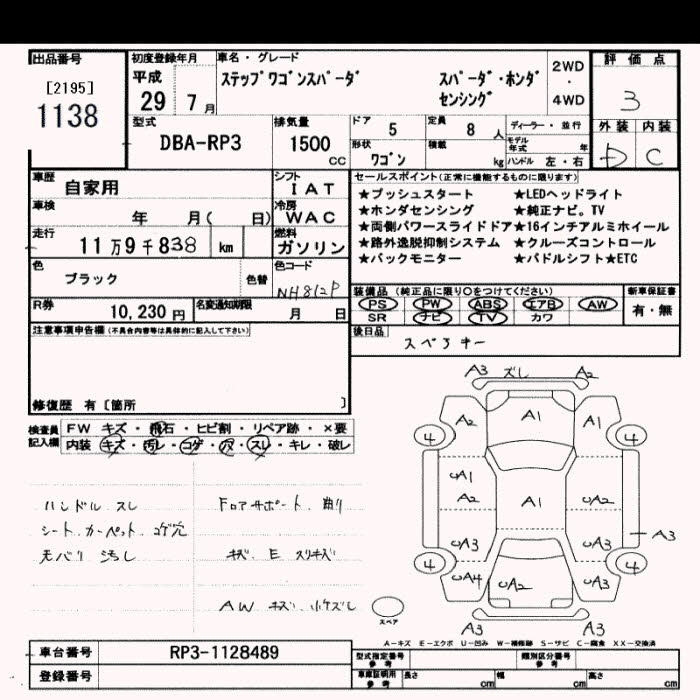 出品番号 初度登録年月 車名・グレード 評価点
[2195] 1138
平成 29 7月
ステップワゴンスパーダ スパーダ・ホンダセンシング
2WD・4WD
3
型式 DBA-RP3
排気量 1500 CC
ドア 5 定員 8 人 ディーラー・並行
形状 ワゴン 積載 kg モデル年式 年 ハンドル 左・右
外装 内装
D C
車歴 自家用
シフト IAT
車検 年 月( 日)
冷房 WAC
走行 11万9千838 km
燃料 ガソリン
色 ブラック 色替
色コード NH812P
R券 10,230円 名変通知期限 月 日
セールスポイント(正常に機能するものに限ります)
★プッシュスタート ★LEDヘッドライト
★ホンダセンシング ★純正ナビ。TV
★両側パワースライドドア★16インチアルミホイール
★路外逸脱抑制システム ★クルーズコントロール
★バックモニター ★パドルシフト★ETC
装備品(純正品に限り○をつけてください) 新車保証書
PS PW ABS エアB AW 有・無
SR ナビ TV カワ
後日品
スペアキー
注意事項申告欄(不具合内容等は具体的に記入して下さい)
修復歴 有〔箇所 〕
検査員記入欄
FW キズ・飛石・ヒビ割・リペア跡・×要
内装 キズ・汚レ・コゲ・穴・スレ・キレ・破レ
ハンドル スレ
シート、カーペット、コゲ穴
モバリ 汚し
Fロアサポート、曲り
キズ、E スリキズ
AW キズ
A3 ズレ A2
A2 A1 A2
4 4
UA1
A2 A1 UA2
UA3 UA3 A3
4 4
UA4 UA2 A3
A3 A3
スペア
A-キズ E-エクボ U-凹み W-補修跡 S-サビ C-腐食 XX-交換済
車台番号 RP3-1128489
登録番号
型式指定番号 参考 類別区分番号 参考
車庫証明用 参考 長さ cm 幅 cm 高さ cm